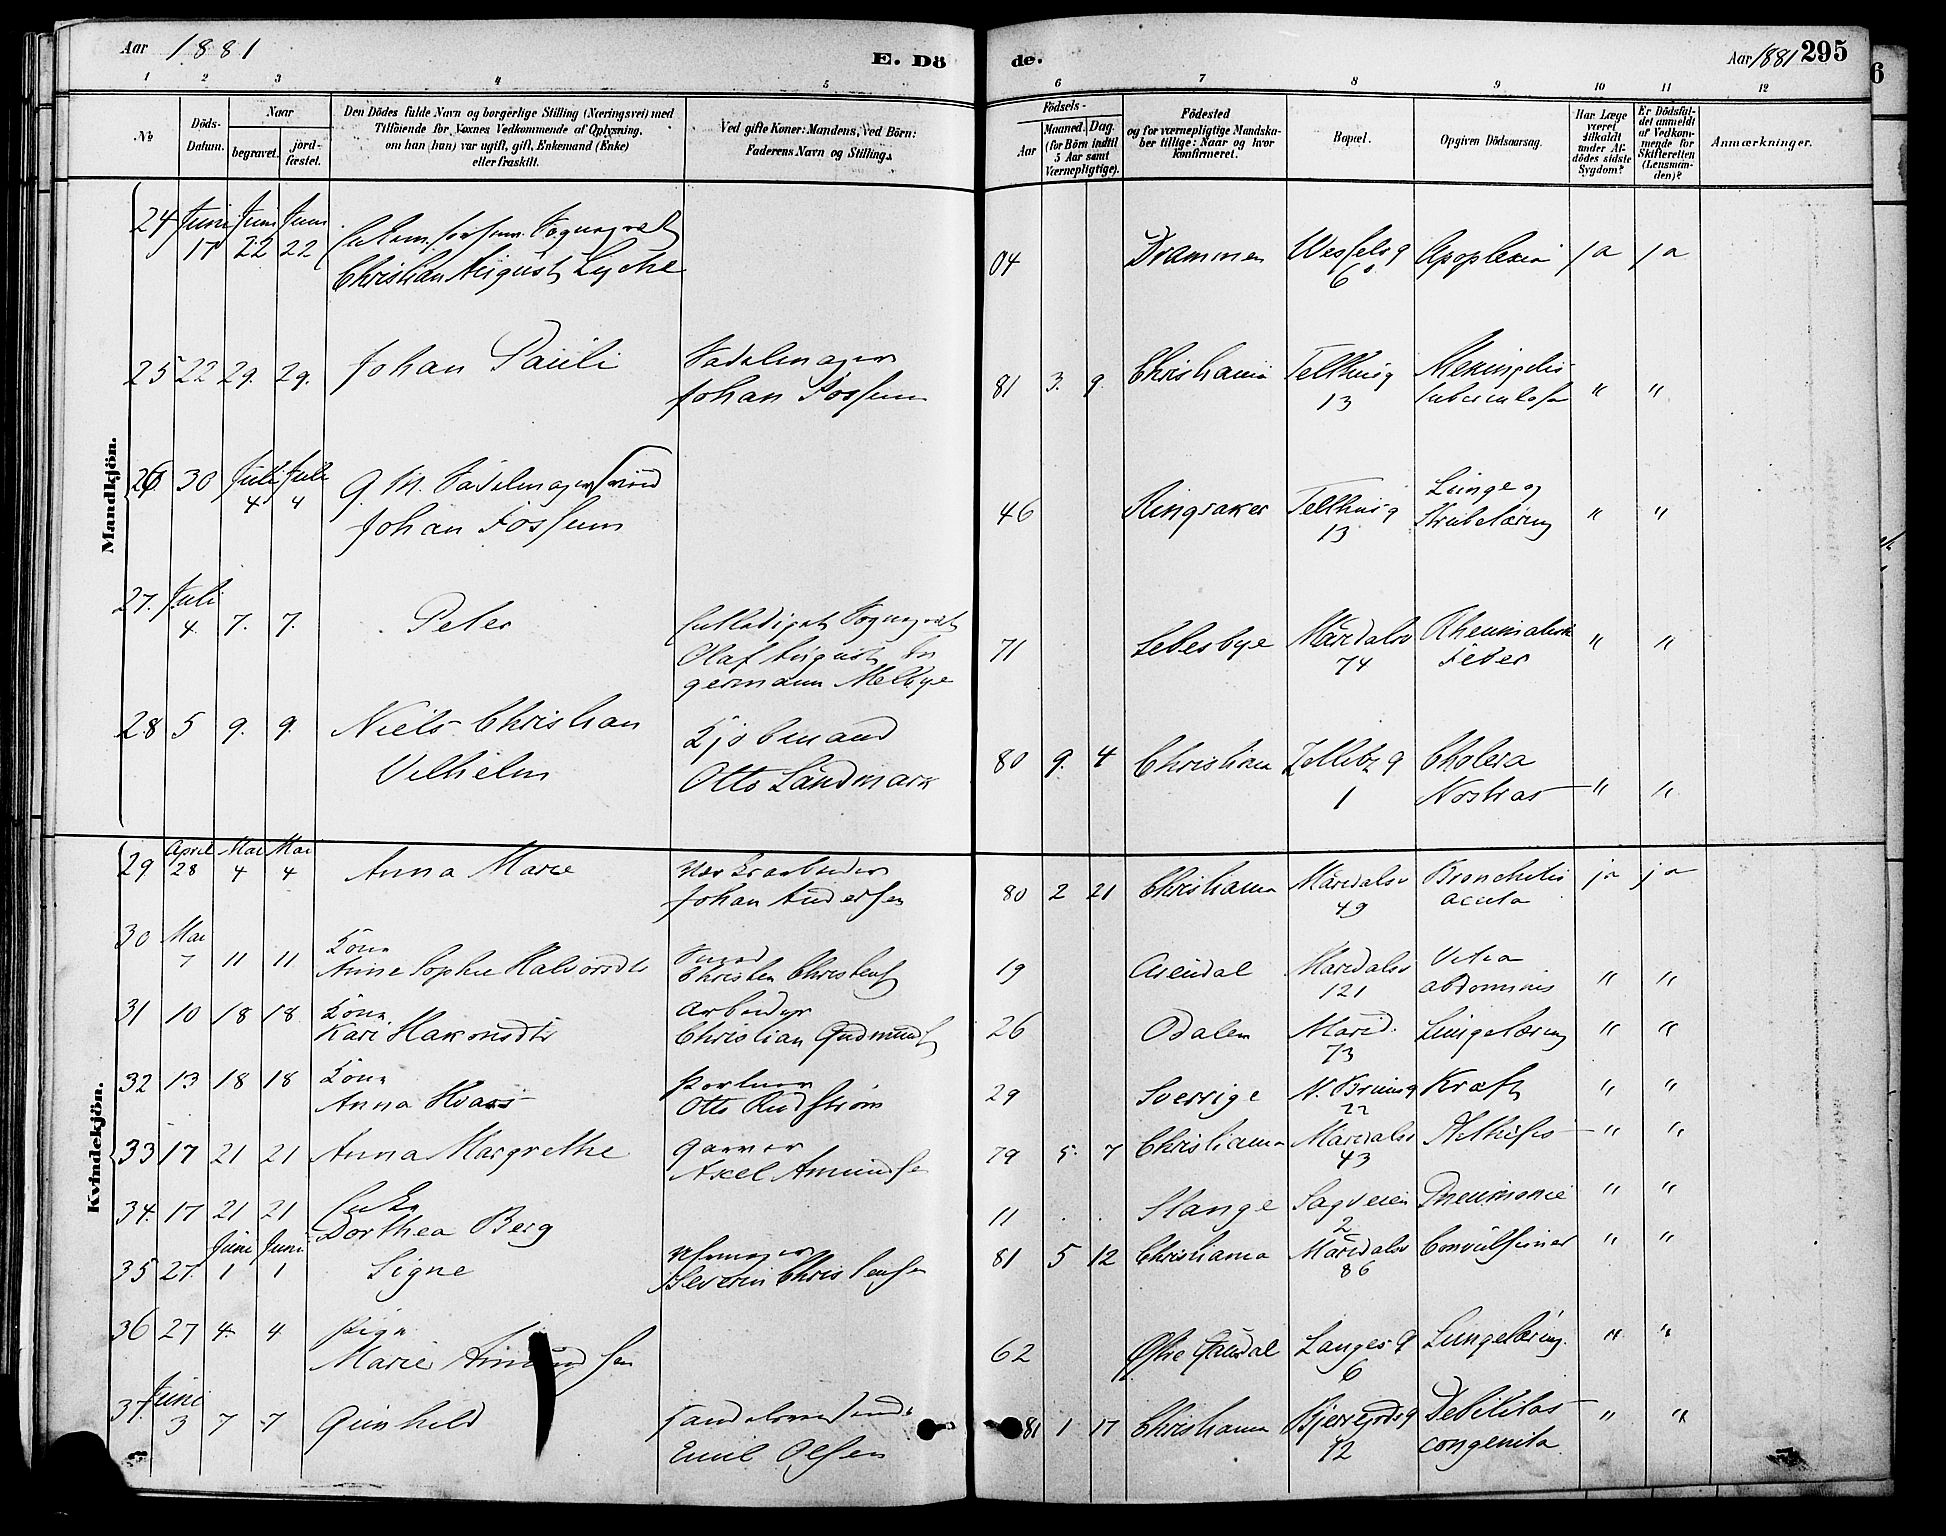 Aar 1881 E. Dö de. Aar 1881 295
1 2 3 4 5 6 7 8 9 10 11 12
No
Döds-Datum.
Naar
begravet.
jord-fæstet.
Den Dödes fulde Navn og borgerlige Stilling (Næringsvei) med
Tilföiende for Voxnes Vedkommende af Oplysning,
om han (hun) var ugift, gift, Enkemand (Enke)
eller fraskilt.
Ved gifte Koner: Mandens, Ved Börn:
Faderens Navn og Stilling.
Födsels-
Aar
Maaned. Dag.
(for Börn indtil
5 Aar samt
Værnepligtige).
Födested
og for værnepligtige Mandska-
ber tillige: Naar og hvor
konfirmeret.
Bopæl.
Opgiven Dödsaarsag.
Har Læge
været
tilkaldt
under Af-
dödes sidste
Sygdom?
Er Dödsfal-
det anmeldt
af Vedkom-
mende for
Skifteretten
(Lensman-
den)?
Anmærkninger.
Mandkjön.
24 Juni 17 Juni 22 Juni 22
Christian August Lyche 04 Drammen Wessels g 6 Apoplexia ja ja
25 22 29. 29. Johan Pauli Sadelmager
Johan Fossum 81 3. 9. Christiania Telthusg 13 Meningitis
tuberculosa " "
26 30 Juli 4 Juli 4 g. M. Sadelmagersvend
Johan Fossum 46 Ringsaker Telthusg 13 Lunge og
Strubetæring " "
27. Juli 4. 7. 7. Peter
Olaf August
germann Melbye 71 Lebesbye Maridalsv 74 Rheumatisk
Feber " "
28 5 9. 9. Niels Christian
Vilhelm
Kjøbmand
Otto Landmark 80 9. 4 Christiania 1 Cholera
Nostras " "
Kvindekjön.
29 April 28 Mai 4 Mai 4 Anna Marie
Johan Andersen 80 2 21 Christiania Maridalsv 49 Bronchitis
acuta ja ja
30 Mai 7 11 11 Kone
Anne Sophie Halvorsdtr Smed
Christen Christens 19 Arendal Maridalsv 121 Vitia
abdominis " "
31 10 18 18 Kone
Kari Hakonsdtr Arbeider
Christian Gudmunds 26 Odalen Marid. 73 Lungetæring " "
32 13 18 18 Kone
Anna Hvass Portner
Otto Rudstrøm 29 Sverrige N. Bruns g 22 Kræft " "
33 17 21 21 Anna Margrethe Garver
Axel Amundsen 79 5. 7 Christiania Maridalsv 43 Phthisis " "
34. 17 21 21 Enke
Dorthea Berg 11 Stange Sagveien 2 Pneumonie " "
35 27. Juni 1 Juni 1 Signe Uhrmager
Severin Christensen 81 5 12 Christiania Maridalsv 86 Convulsiones " "
36 27 4. 4 Pige
Marie Amundsen 62 Østre Gausdal Langes g 6 Lungetæring. " "
37. Juni 3 7 7 Gunhild
Emil Olsen 81 1 17 Christiania Bjerregrds g 12 Debilitas
congenita " "